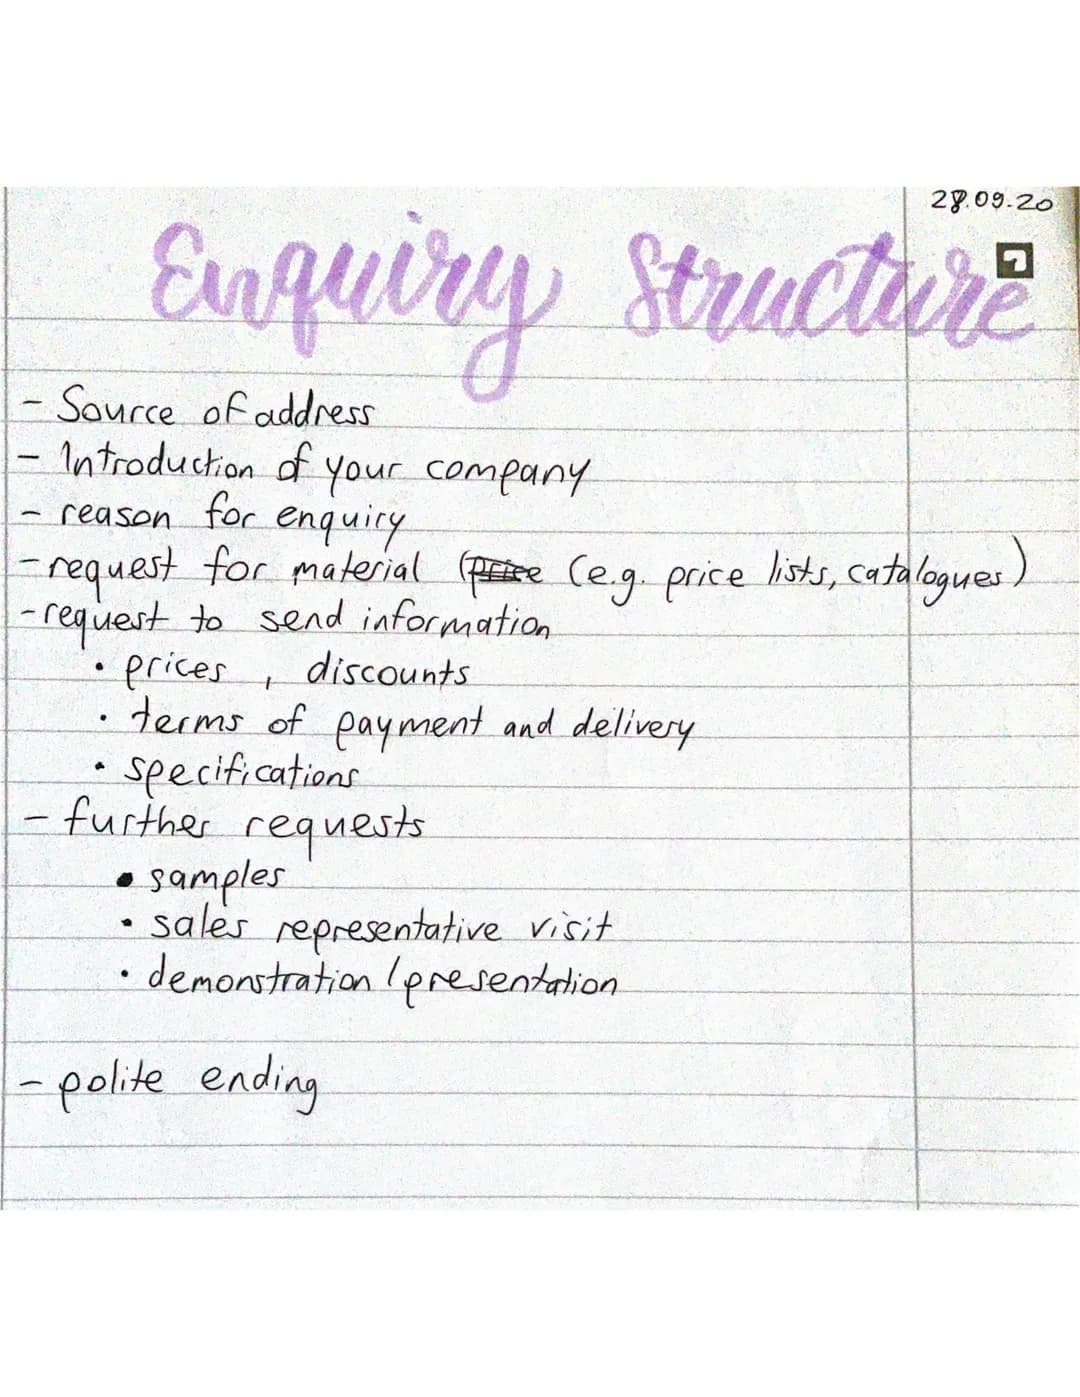 28.09.20
Enquiry Structure
- Source of address
- Introduction of your company
- reason for enquiry
- request for material (price (e.g. price lists, catalogues)
- request to send information
• prices, discounts
• terms of payment and delivery
• specifications
- further requests
• samples
• sales representative visit
• demonstration / presentation
- polite ending